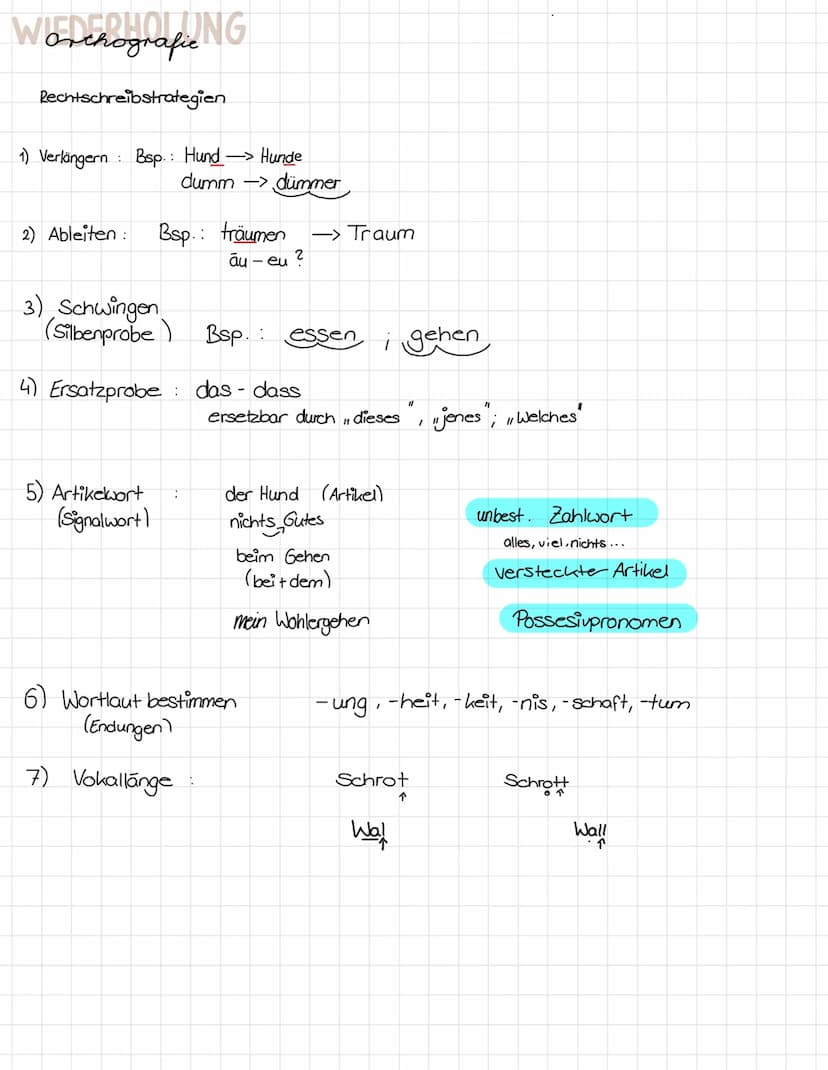 WIEDERHOLUNG
Orthografie
Rechtschreibstrategien
1) Verlängern : Bsp.: Hund —> Hunde
dumm —> dümmer
2) Ableiten : Bsp.: träumen —> Traum
äu – eu ?
3) Schwingen
(Silbenprobe) Bsp. : essen ; gehen
4) Ersatzprobe : das - dass
ersetzbar durch „dieses", „jenes"; „Welches"
5) Artikelwort : der Hund (Artikel)
(Signalwort) nichts Gutes unbest. Zahlwort
alles, viel, nichts ...
beim Gehen versteckter Artikel
(bei + dem)
mein Wohlergehen Possesivpronomen
6) Wortlaut bestimmen -ung, -heit, -keit, -nis, -schaft, -tum
(Endungen)
7) Vokallänge : Schrot Schrott
Wal Wall